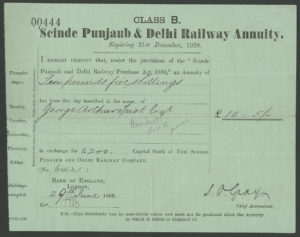 00444
CLASS B.
Scinde Punjaub & Delhi Railway Annuity.
Expiring 31st December, 1958.
I hereby certify that, under the provisions of the "Scinde
Punjaub and Delhi Railway Purchase Act, 1886," an Annuity of
Transfer days:
Ten pounds five shillings
Monday,
has been this day inscribed in the name of
Tuesday,
George Arthur Esqr
£10. 5/-
Wednesday,
Thursday,
Friday.
in exchange for £200. Capital Stock of The Scinde
Punjaub and Delhi Railway Company.
(No. 6421)
Holidays excepted.
Bank of England,
London,
29th June 1886
Chief Accountant.
N.B.—This Certificate has no negotiable value, and need not be produced when the annuity
is disposed of.